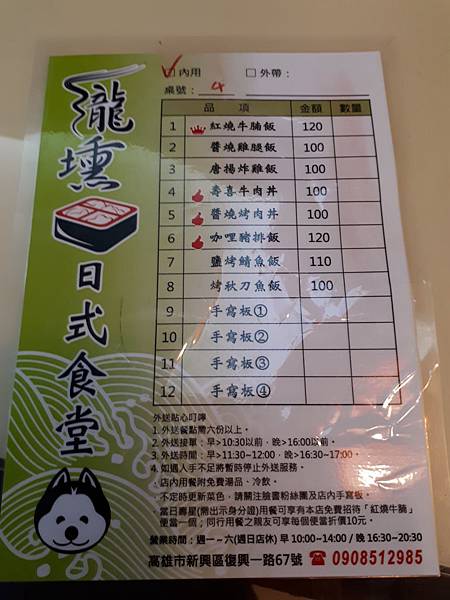 瀧壎日式食堂
✓內用 □外帶：
桌號：4
品 項 金額 數量
1 紅燒牛腩飯 120
2 醬燒雞腿飯 100
3 唐揚炸雞飯 100
4 壽喜牛肉丼 100
5 醬燒烤肉丼 100
6 咖哩豬排飯 120
7 鹽烤鯖魚飯 110
8 烤秋刀魚飯 100
9 手寫板①
10 手寫板②
11 手寫板③
12 手寫板④
外送貼心叮嚀
1. 外送餐點需六份以上。
2. 外送接單：早>10:30以前、晚>16:00以前。
3. 外送時間：早>11:30~12:00、晚>16:30~17:00。
4. 如遇人手不足將暫時停止外送服務。
．店內用餐附免費湯品、冷飲。
．不定時更新菜色，請關注臉書粉絲團及店內手寫板。
當日壽星(需出示身分證)用餐可享有本店免費招待「紅燒牛腩」
便當一個；同行用餐之親友可享每個便當折價10元。
營業時間：週一~六(週日店休) 早 10:00~14:00 / 晚 16:30~20:30
高雄市新興區復興一路67號 ☎ 0908512985